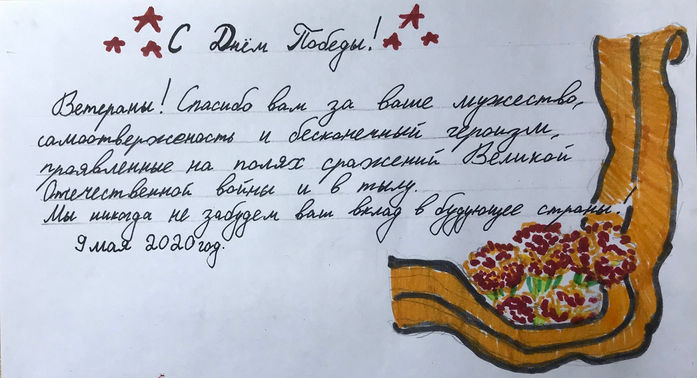 С Днём Победы!
Ветераны! Спасибо вам за ваше мужество,
самоотверженость и бесконечный героизм,
проявленные на полях сражений Великой
Отечественной войны и в тылу.
Мы никогда не забудем ваш вклад в будующее страны!
9 мая 2020 год.